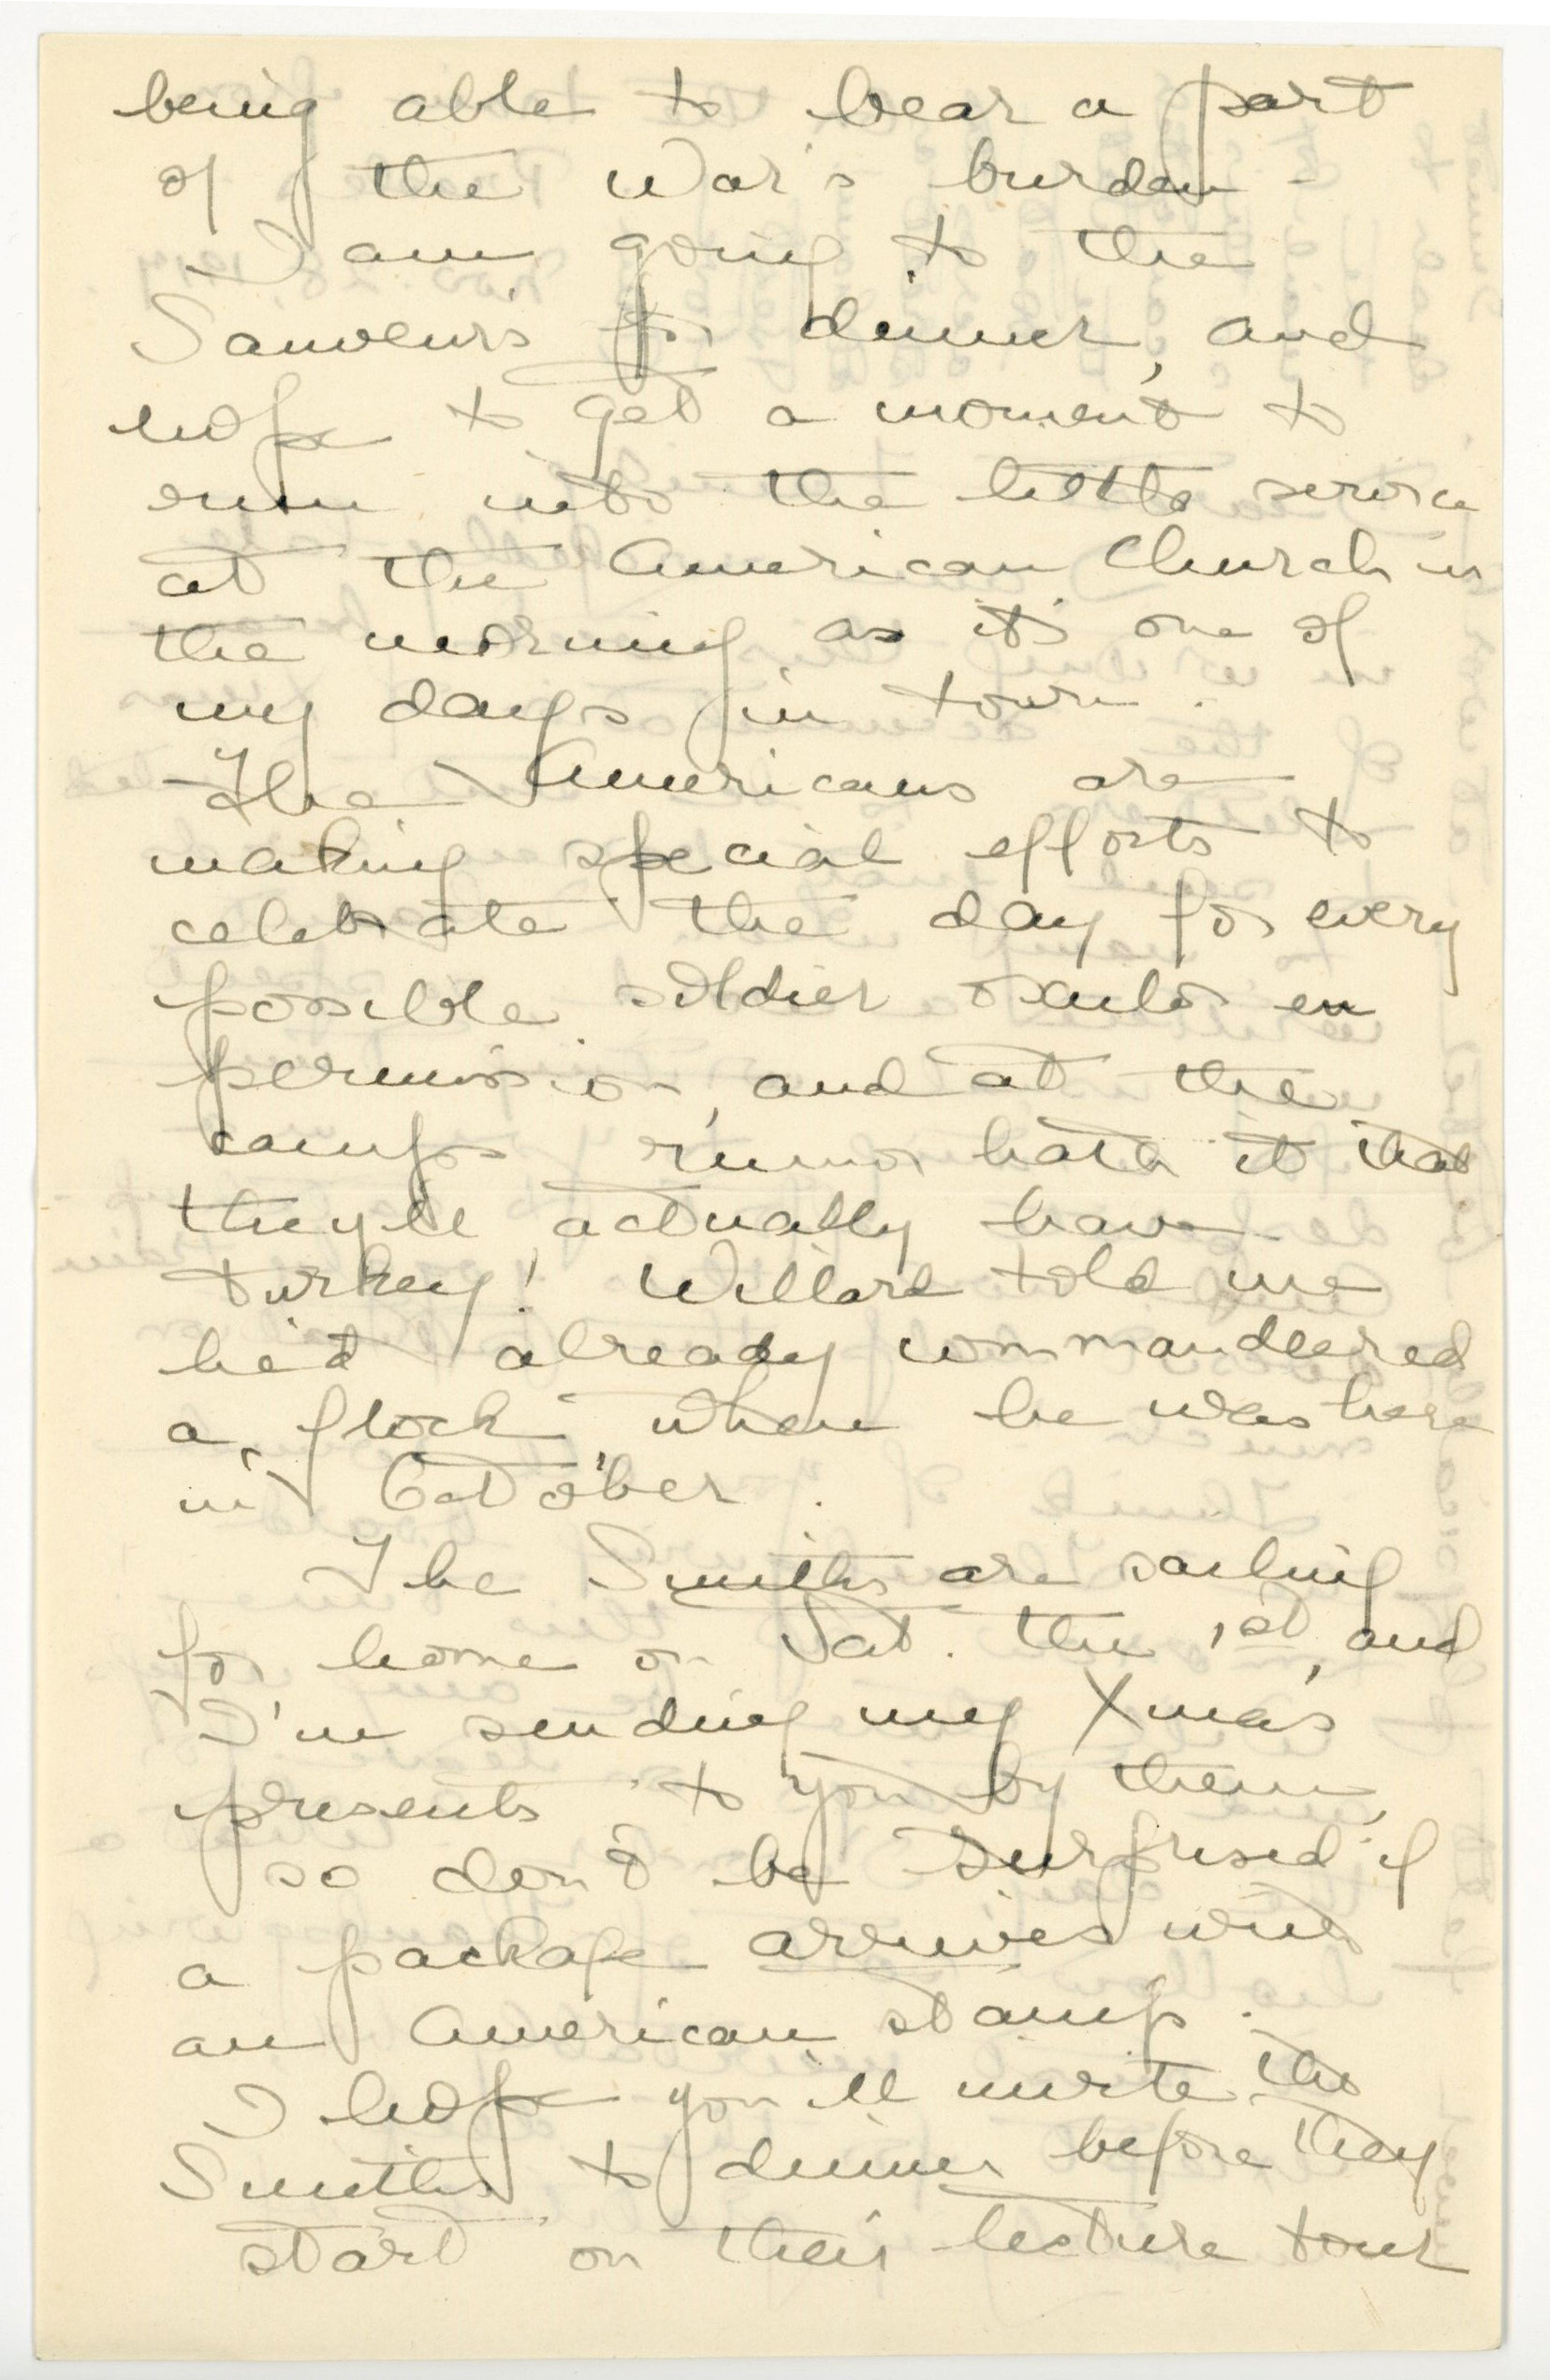 being able to bear a part
of the War's burden -
I am going to the
Sauveur's for dinner, and
hope to get a moment to
run into the little service
at the American Church in
the morning as it's one of
my days in town.
The Americans are
making special efforts to
celebrate the day for every
possible soldier exiled en
permission, and at the
camps rumor hath it that
they'll actually have
turkey! Willard told me
he'd already commandeered
a flock when he was here
in October.
The Smiths are sailing
for home on Sat. the 1st, and
I'm sending my Xmas
presents to you by them,
so don't be surprised if
a package arrives with
an American stamp.
I hope you'll invite the
Smiths to dinner before they
start on their lecture tour